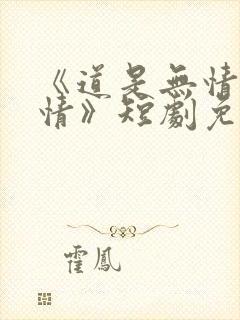 《道是無情
情》短劇免
霍鳳